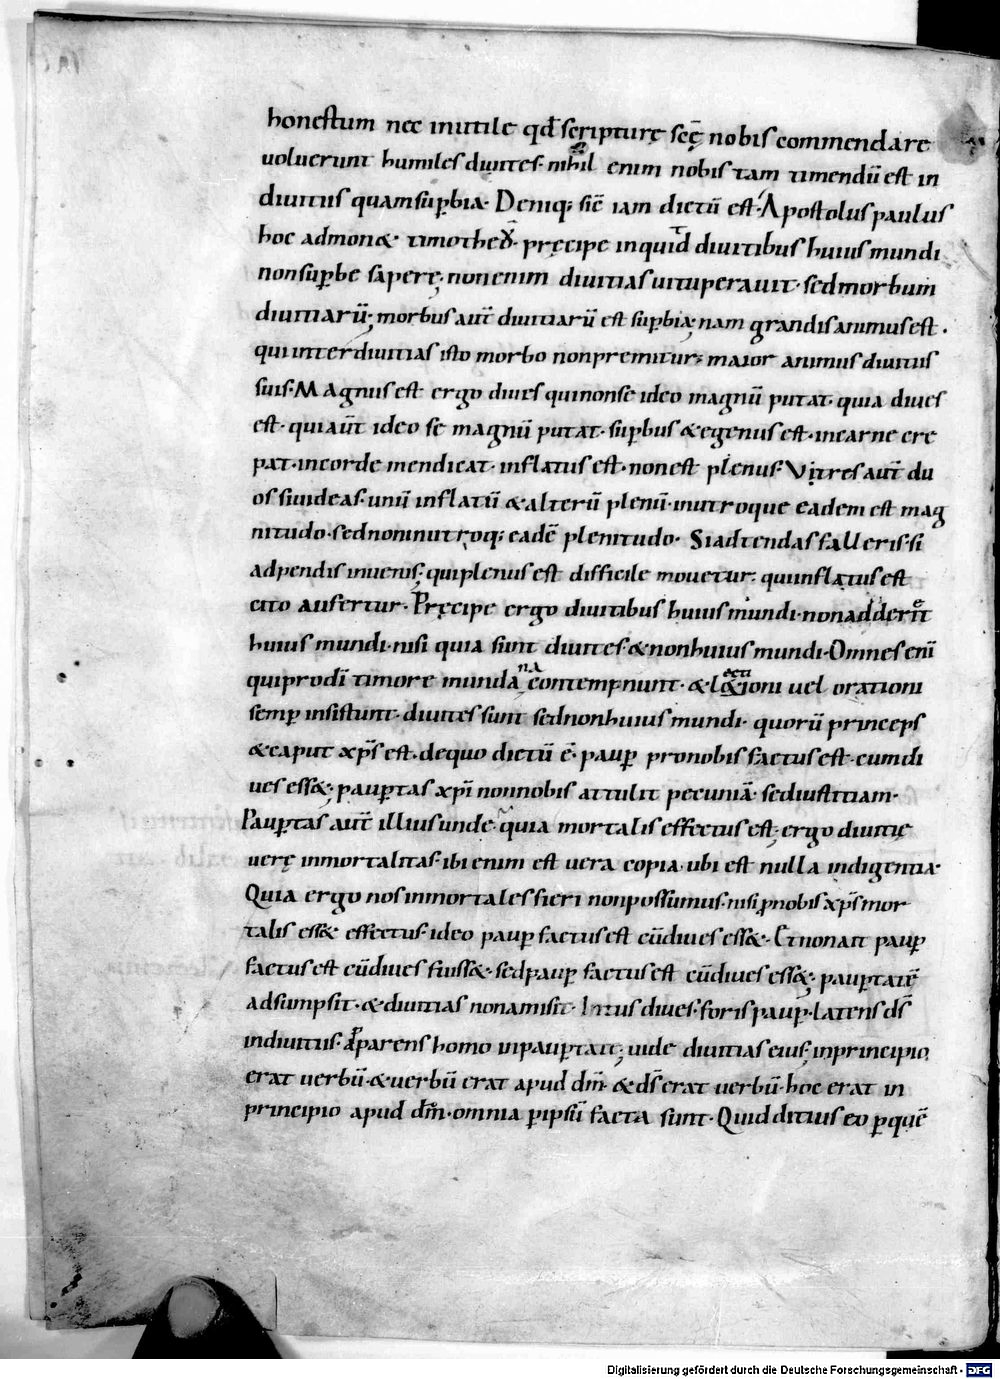 honestum nec inutile qđ scripturę scę̄ nobis commendare
uoluerunt humiles diuites· nihil enim nobis tam timendū est in
diuitiis quam suꝑbia· Deniq; sic̄ iam dictū est· Apostolus paulus
hoc admon& timotheū· pręcipe inquid diuitibus huius mundi
non suꝑbe saperę; non enim diuitias uituperauit· sed morbum
diuitiarū; morbus aut̄ diuitiarū est suꝑbia; nam grandis animus est·
qui inter diuitias isto morbo non premitur; maior animus diuitiis
suis· Magnus est ergo diues qui non se ideo magnū putat· quia diues
est· qui aut̄ ideo se magnū putat· suꝑbus & egenus est· in carne cre
pat· in corde mendicat· inflatus est· non est plenus· Vtres aut̄ du
os si uideas· unū inflatū & alterū plenū· in utroque eadem est mag
nitudo· sed non in utroq; eadē plenitudo· Si adtendas falleris· si
adpendis inuenis· qui plenus est difficile mouetur· qui inflatus est
cito aufertur· Pręcipe ergo diuitibus huius mundi· non adder&
huius mundi· nisi quia sunt diuites & non huius mundi· Omnes eni
qui pro dī timore mundana contempnunt· & lectioni uel orationi
semꝑ insistunt· diuites sunt sed non huius mundi· quorū princeps
& caput xp̄s est· de quo dictū ē· pauꝑ pro nobis factus est· cum di
ues ess&; pauꝑtas xp̄i non nobis attulit pecuniā· sed iustitiam·
Pauꝑtas aut̄ illius unde· quia mortalis effectus est; ergo diuitię
uerę inmortalitas· ibi enim est uera copia· ubi est nulla indigentia·
Quia ergo nos inmortales fieri non possumus· nisi ꝓ nobis xp̄s mor
talis ess& effectus· ideo pauꝑ factus est cū diues ess&· Et non ait pauꝑ
factus est cū diues fuiss&· sed pauꝑ factus est cū diues ess&; pauꝑtatē
adsumpsit· & diuitias non amisit· Intus diues· foris pauꝑ· latens ds̄
in diuitiis· apparens homo in pauꝑtati; uide diuitias eius; in principio
erat uerbū· & uerbū erat apud dm̄· & ds̄ erat uerbū· hoc erat in
principio apud dm̄· omnia ꝑ ipsū facta sunt· Quid ditius eo ꝑ quē
Digitalisierung gefördert durch die Deutsche Forschungsgemeinschaft - DFG